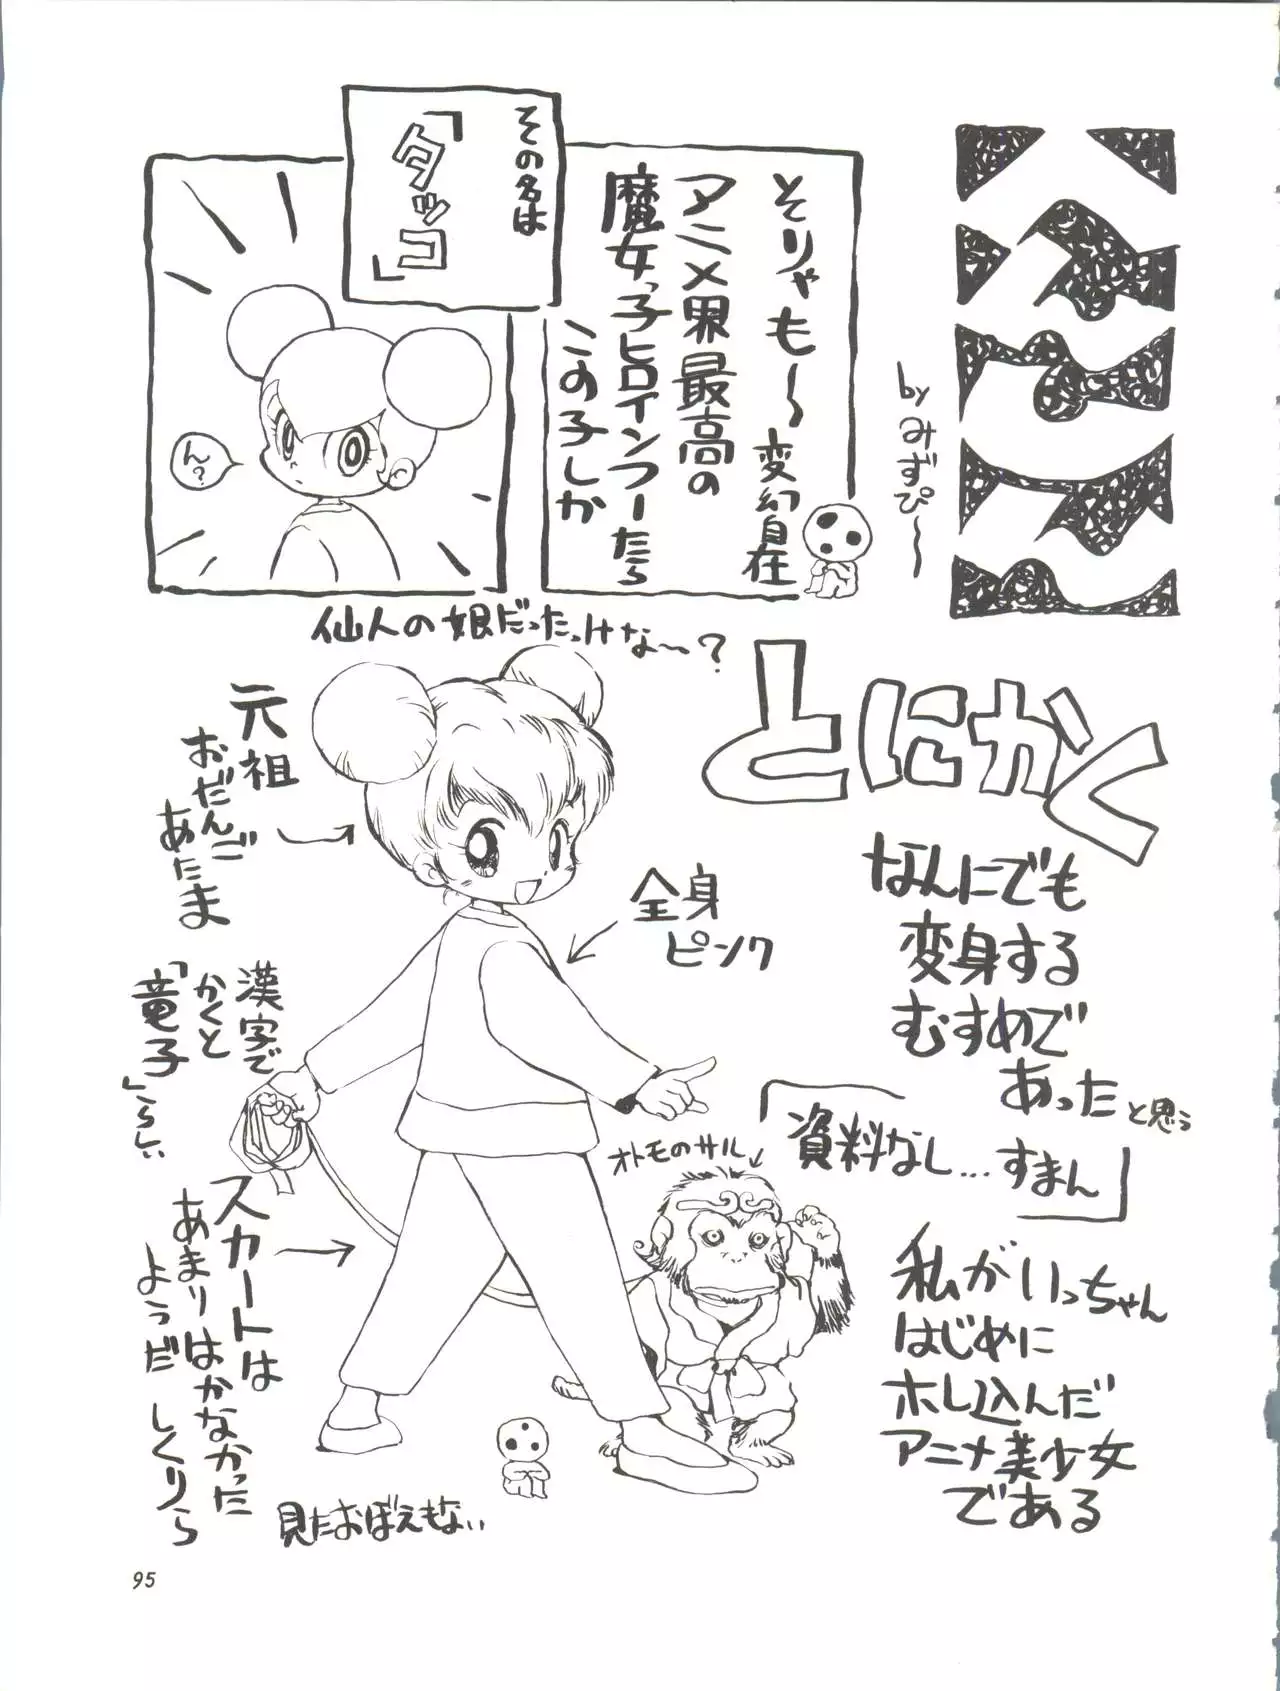 by みずぴ〜
そりゃも〜
アニメ界最高の
魔女っ子ヒロインフーたら
この子しか
変幻自在
その名は
「タッコ」
ん?
仙人の娘だったっけな〜?
とにかく
なんにでも
変身する
むすめで
あった
と思う
「資料なし…すまん」
私がいっちゃん
はじめに
ホレ込んだ
アニメ美少女
である
元祖
おだんご
あたま
全身
ピンク
漢字で
かくと
「竜子」らしい
オトモのサル
スカートは
あまりはかなかった
ようだ しくりら
見たおぼえもない
95